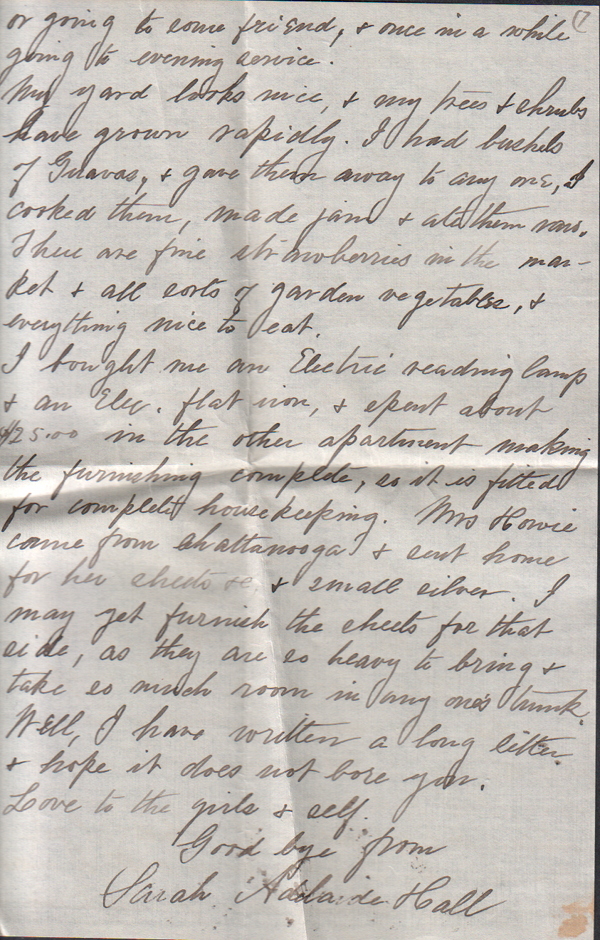 7
or going to some friend, & once in a while
going to evening service.
My yard looks nice, & my trees & shrubs
have grown rapidly. I had bushels
of Guavas, & gave them away to any one, I
cooked them, made jam & ate them raw.
There are fine strawberries in the mar-
ket & all sorts of garden vegetables, &
everything nice to eat.
I bought me an Electric reading lamp
& an Elec. flat iron, & spent about
$25.00 in the other apartment making
the furnishing complete, so it is fitted
for complete housekeeping. Mrs Howie
came from Chattanooga & sent home
for her sheets &c, & small silver. I
may yet furnish the sheets for that
side, as they are so heavy to bring &
take so much room in any one's trunk.
Well, I have written a long letter
& hope it does not bore you.
Love to the girls & self.
Good bye from
Sarah Adelaide Hall